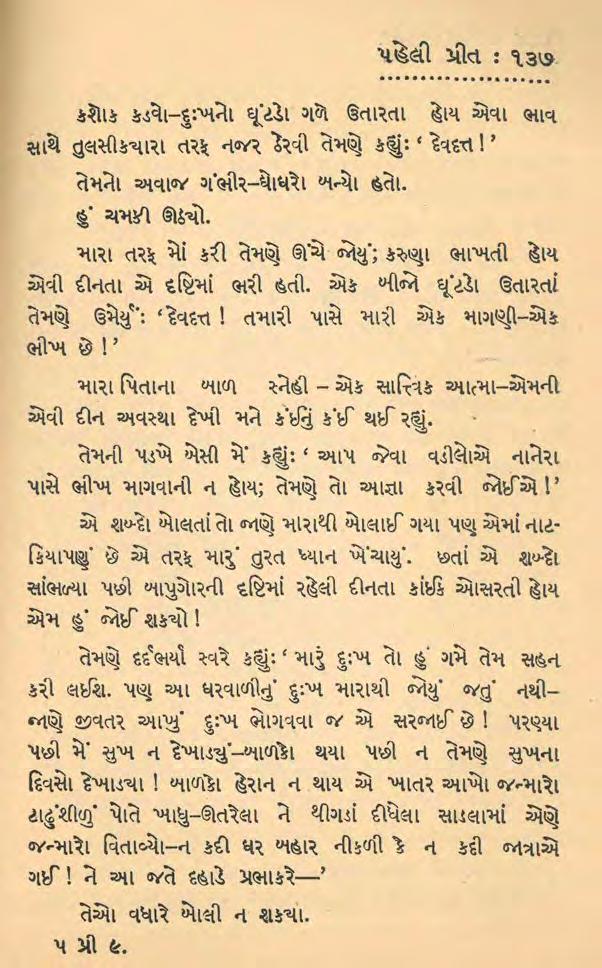 પહેલી પ્રીત : ૧૩૭
કશોક કડવો–દુઃખનો ઘૂંટડો ગળે ઉતારતા હોય એવા ભાવ
સાથે તુલસીક્યારા તરફ નજર ઠેરવી તેમણે કહ્યુંઃ ‘ દેવદત્ત !’
તેમનો અવાજ ગંભીર–ઘોઘરો બન્યો હતો.
હું ચમકી ઊઠ્યો.
મારા તરફ મોં કરી તેમણે ઊંચે જોયું; કરુણા ભાખતી હોય
એવી દીનતા એ દૃષ્ટિમાં ભરી હતી. એક બીજો ઘૂંટડો ઉતારતાં
તેમણે ઉમેર્યુંઃ ‘દેવદત્ત ! તમારી પાસે મારી એક માગણી–એક
ભીખ છે !’
મારા પિતાના બાળ સ્નેહી – એક સાત્ત્વિક આત્મા–એમની
એવી દીન અવસ્થા દેખી મને કંઈનું કંઈ થઈ રહ્યું.
તેમની પડખે બેસી મેં કહ્યુંઃ ‘ આપ જેવા વડીલોએ નાનેરા
પાસે ભીખ માગવાની ન હોય; તેમણે તો આજ્ઞા કરવી જોઈએ !’
એ શબ્દો બોલતાં તો જાણે મારાથી બોલાઈ ગયા પણ એમાં નાટ-
કિયાપણું છે એ તરફ મારું તુરત ધ્યાન ખેંચાયું. છતાં એ શબ્દો
સાંભળ્યા પછી બાપુગોરની દૃષ્ટિમાં રહેલી દીનતા કાંઈક ઓસરતી હોય
એમ હું જોઈ શક્યો !
તેમણે દર્દભર્યા સ્વરે કહ્યુંઃ ‘ મારું દુઃખ તો હું ગમે તેમ સહન
કરી લઈશ. પણ આ ઘરવાળીનું દુઃખ મારાથી જોયું જતું નથી–
જાણે જીવતર આખું દુઃખ ભોગવવા જ એ સરજાઈ છે ! પરણ્યા
પછી મેં સુખ ન દેખાડ્યું–બાળકો થયા પછી ન તેમણે સુખના
દિવસો દેખાડ્યા ! બાળકો હેરાન ન થાય એ ખાતર આખો જન્મારો
ટાઢુંશીળું પોતે ખાધુ–ઊતરેલા ને થીગડાં દીધેલા સાડલામાં એણે
જન્મારો વિતાવ્યો–ન કદી ઘર બહાર નીકળી કે ન કદી જાત્રાએ
ગઈ ! ને આ જતે દહાડે પ્રભાકરે—’
તેઓ વધારે બોલી ન શક્યા.
પ પ્રી ૯.